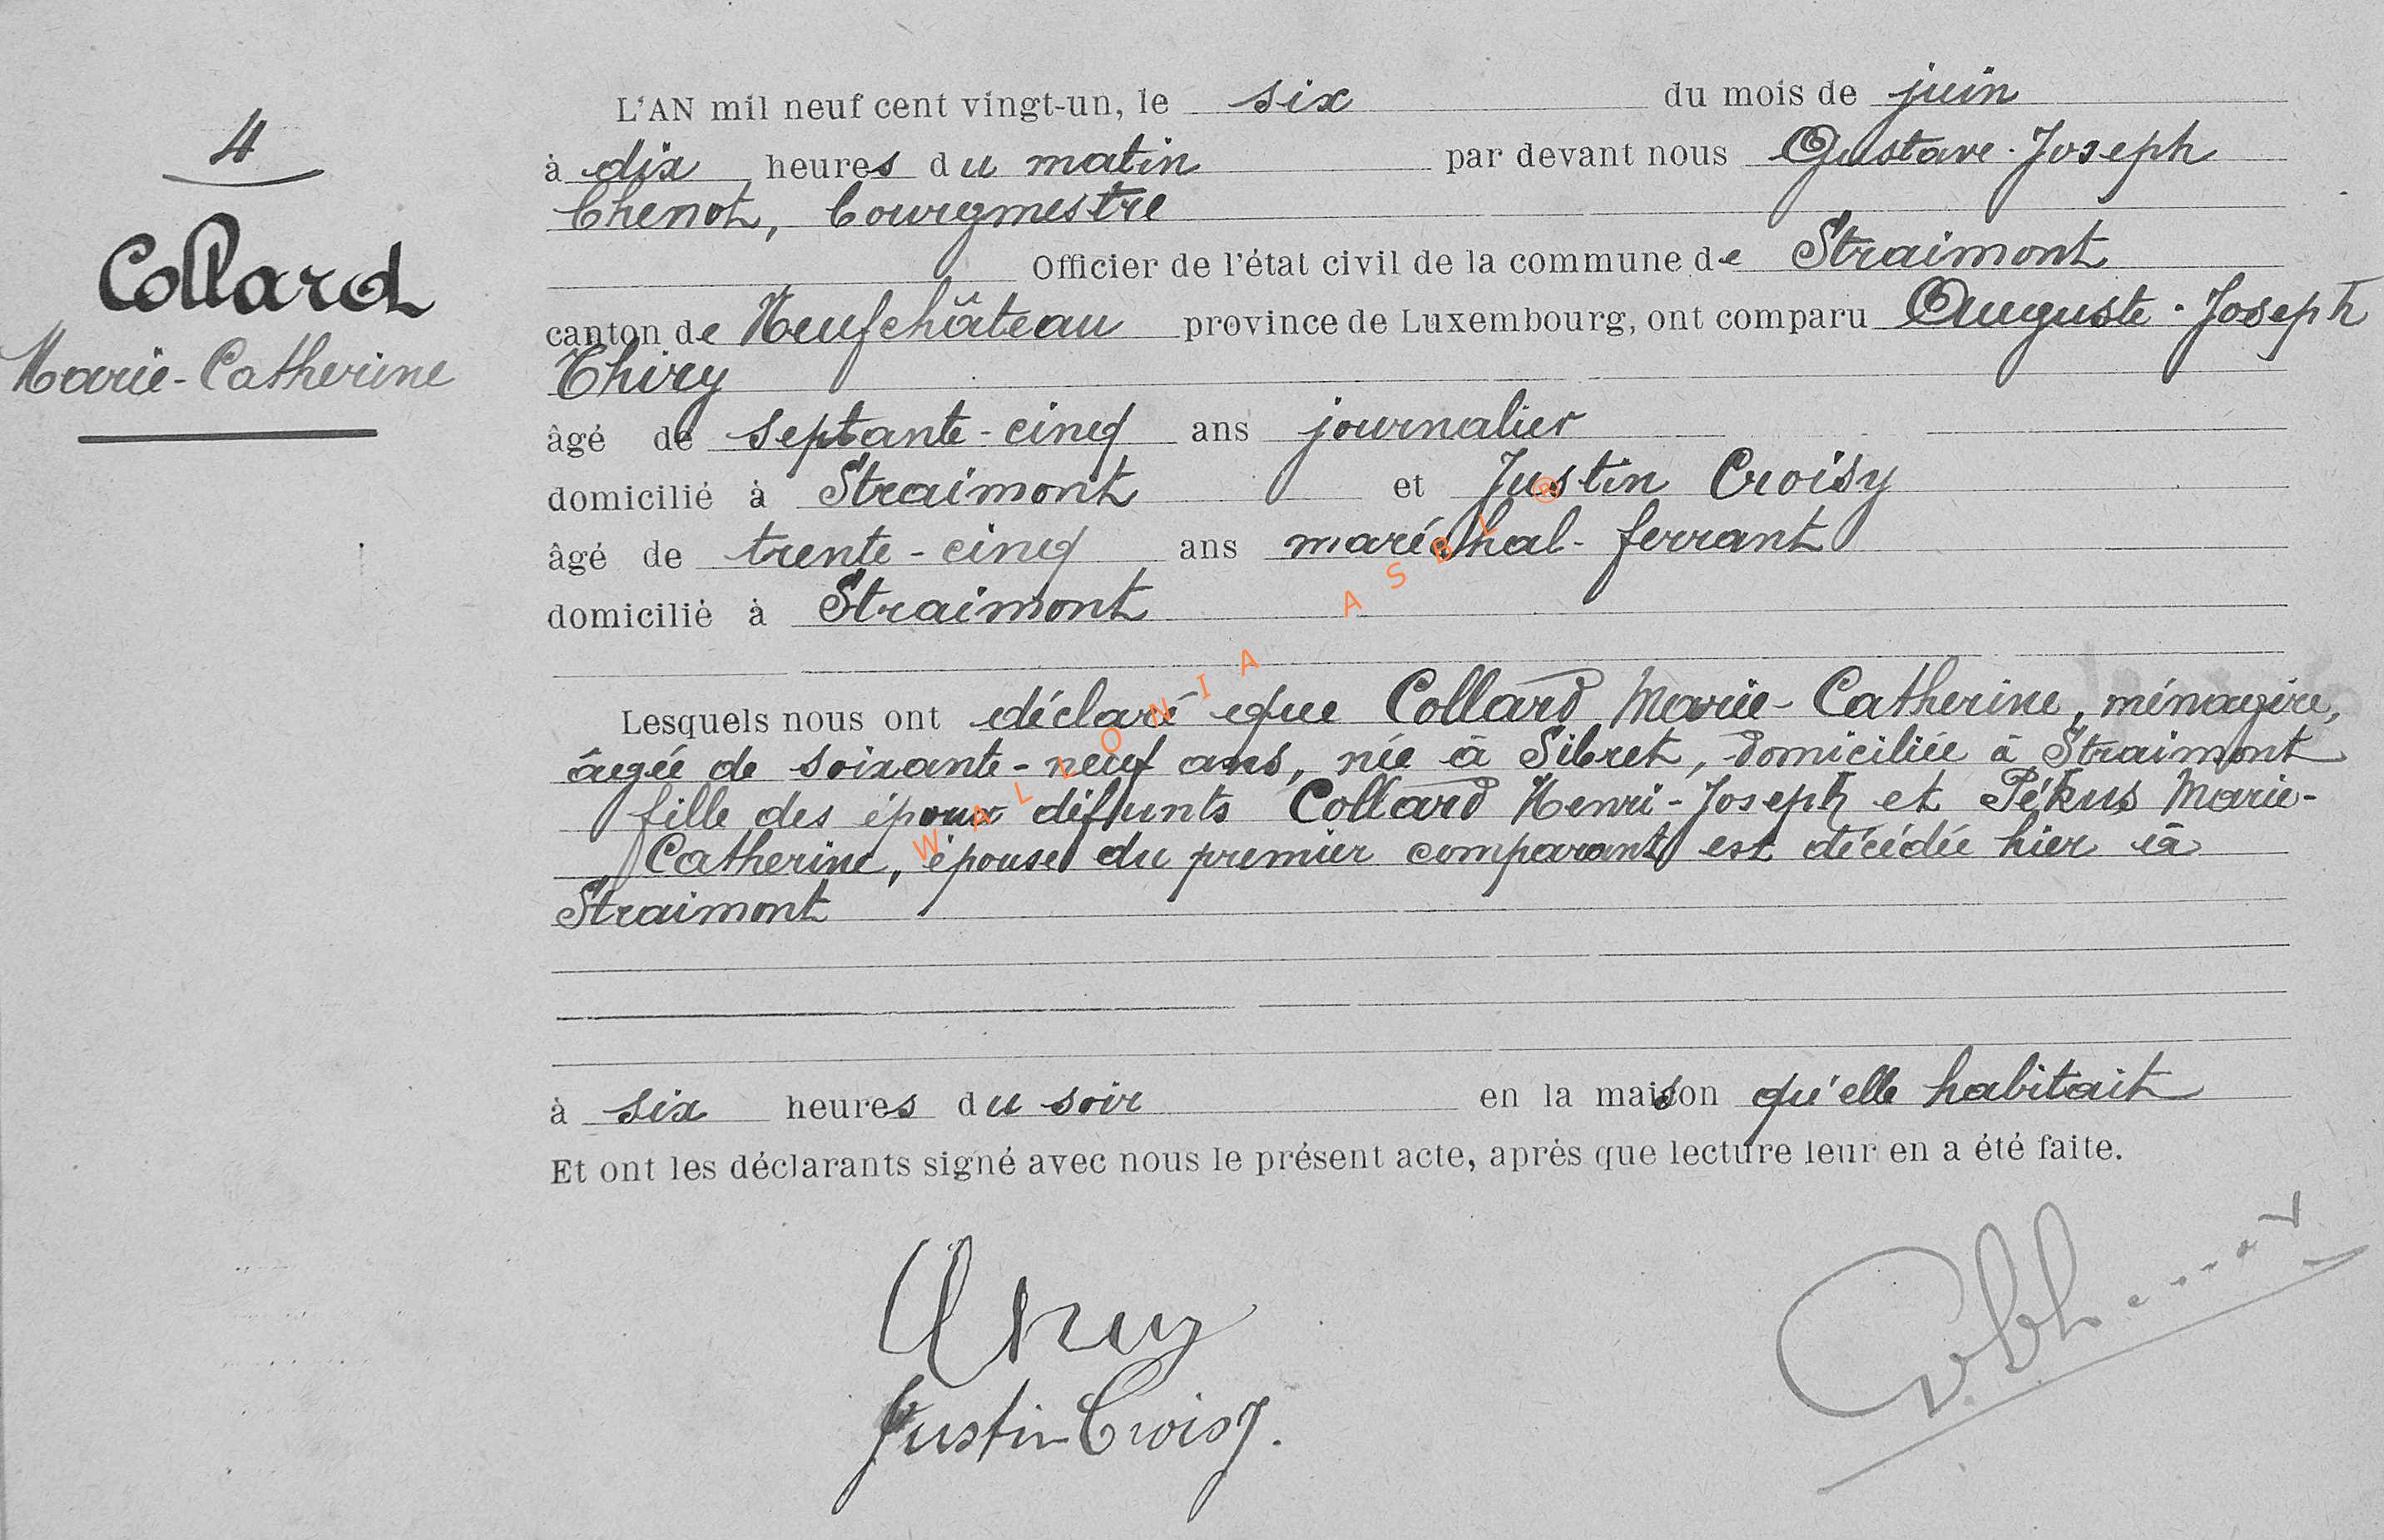 4
Collard
Marie-Catherine
L'AN mil neuf cent vingt-un, le six du mois de juin
à dix heures du matin par devant nous Gustave-Joseph
Chenot, bourgmestre
Officier de l'état civil de la commune de Straimont
canton de Neufchâteau province de Luxembourg, ont comparu Auguste-Joseph
Thiry
âgé de septante-cinq ans journalier
domicilié à Straimont et Justin Croisy
âgé de trente-cinq ans maréchal-ferrant
domicilié à Straimont
Lesquels nous ont déclaré que Collard Marie-Catherine, ménagère,
âgée de soixante-neuf ans, née à Sibret, domiciliée à Straimont
fille des époux défunts Collard Henri-Joseph et Pékus Marie-
Catherine, épouse du premier comparant est décédée hier à
Straimont
à six heures du soir en la maison qu'elle habitait
Et ont les déclarants signé avec nous le présent acte, après que lecture leur en a été faite.
Thiry
Justin Croisy.
WALLONIA ASBL ®